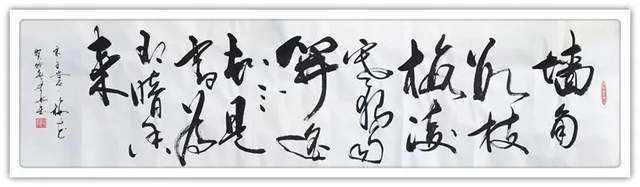 墙角
数枝
梅凌
寒独自
開遥
知不是
雪为
有暗香
来
王安石 梅花